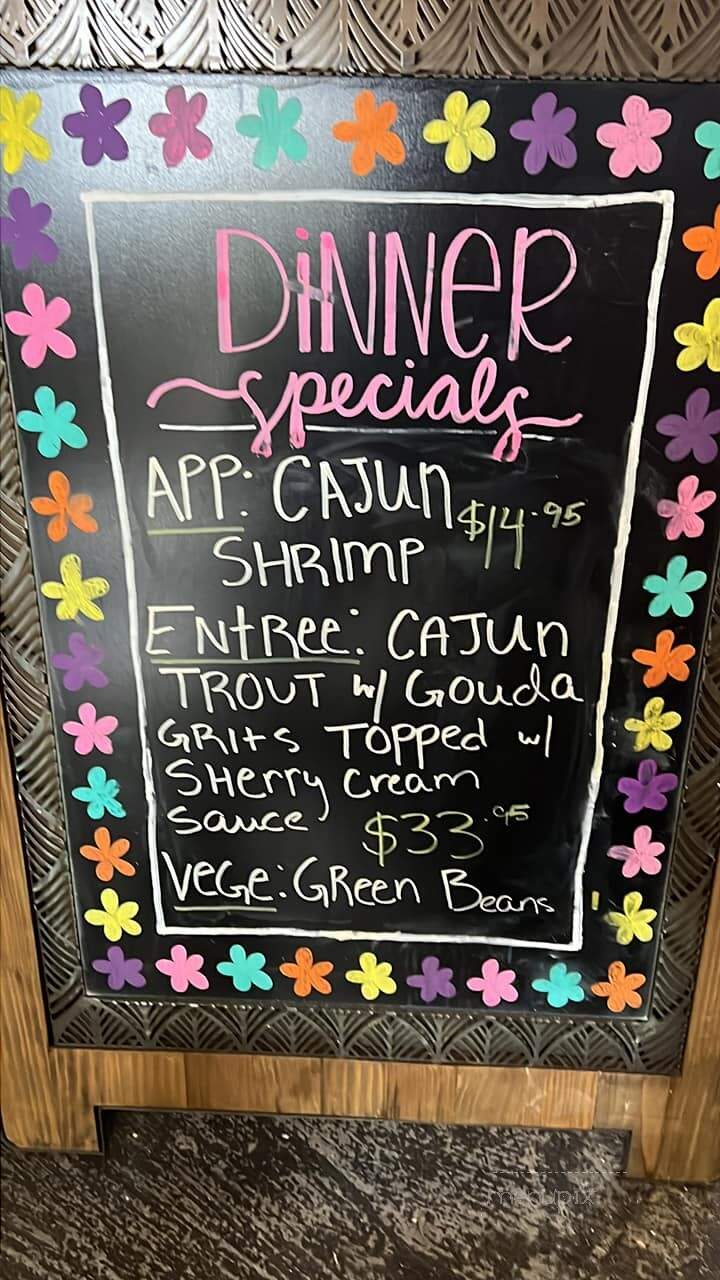 DiNNeR
specials
APP: CAJUN $14.95
SHRIMP
ENtRee: CAJUN
TROUT w/ Gouda
GRIts Topped w/
SHerry Cream
Sauce $33.95
VeGe: GReen Beans
menupix